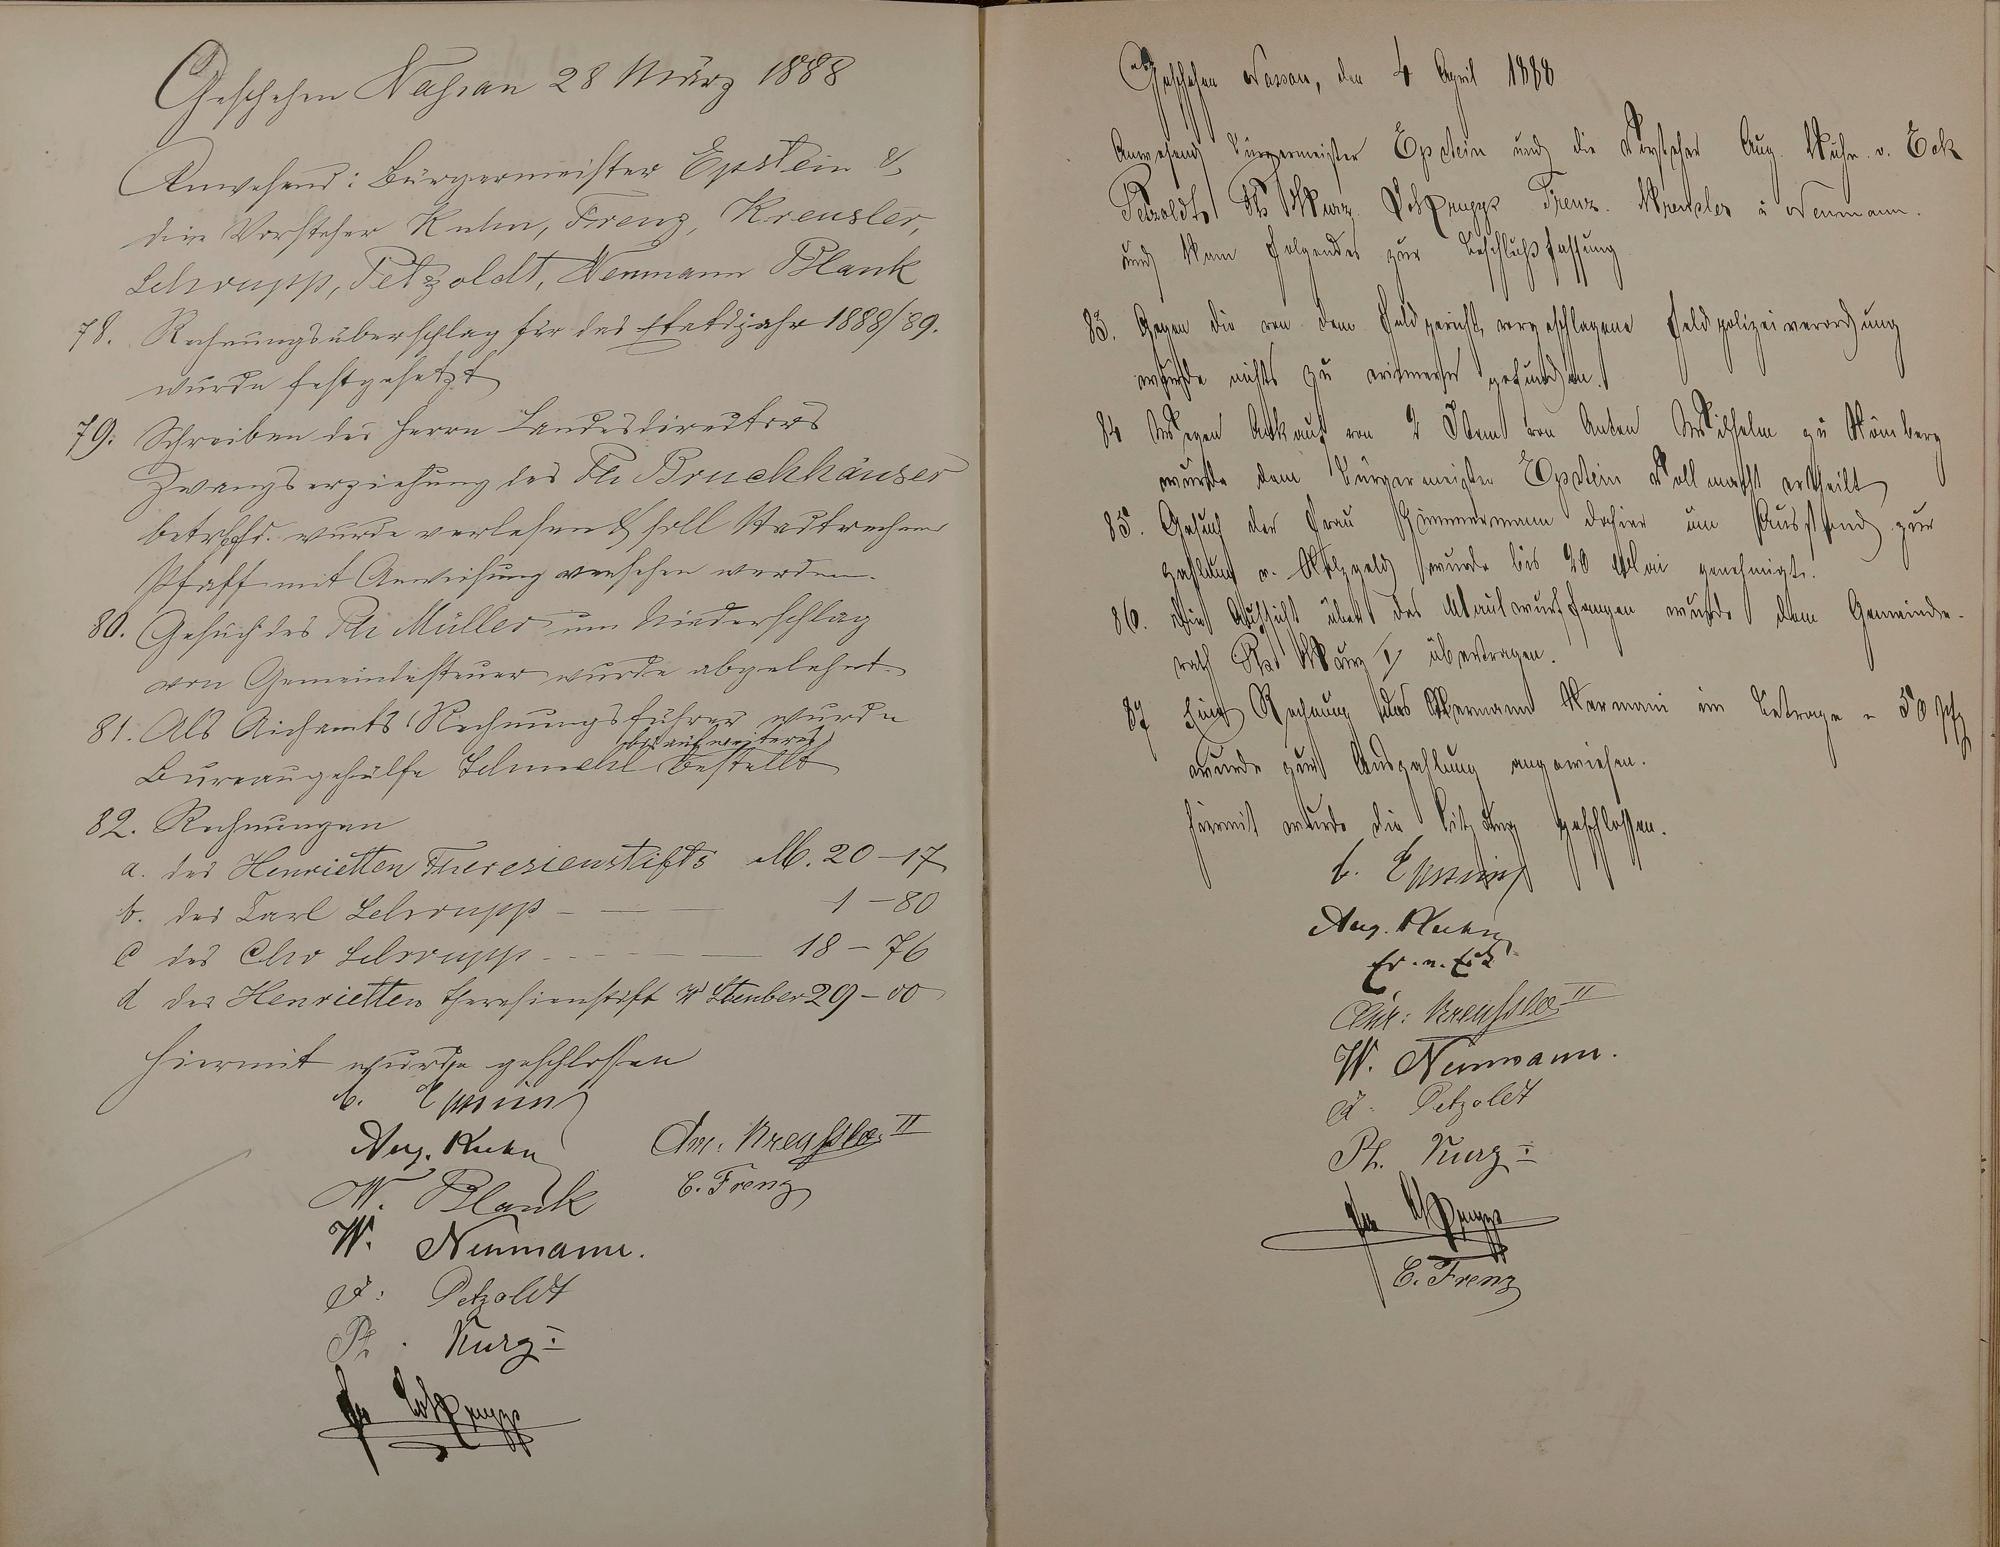 Geschehen Nassau 28 März 1888
Anwesend: Bürgermeister Epstein &
die Vorsteher Kuhn, Frenz, Kreusler,
Schrupp, Petzoldt, Neumann Blank
78. Rechnungsüberschlag für das Etatsjahr 1888/89.
wurde festgesetzt
79. Schreiben des Herrn Landesdirectors
Zwangserziehung des Ph Bruchhäuser
betrffd. wurde verlesen & soll Stadtrechner
Pfaff mit Anweisung versehen werden.
80. Gesuch des Ph Müller um Niederschlag
von Gemeindesteuer wurde abgelehnt.
81. Als Aichamts Rechnungsführer wurde
bis auf weiteres
Bureaugehülfe Schmehl bestellt
82. Rechnungen
a. des Henrietten Theresienstifts M. 20-17
b. des Carl Schrupp - - - 1-80
c des Chr Schrupp - - - 18-76
d des Henrietten Theresienstift 29-00
Hiermit wurde geschlossen
b. Epstein
Aug. Kuhn Chr. Kreussler II
W. Blank E. Frenz
W. Neumann.
F. Petzoldt
Ph. Kurz I
Schrupp
Geschehen Nassau, den 4 April 1888
Anwesend Bürgermeister Epstein und die Vorsteher Aug. Kuhn v. Eck
Petzoldt Ph Kurz Schrupp Frenz. Kreusler u Neumann.
und kam folgendes zur Beschlußfassung
83. Gegen die von dem Feldgericht vorgeschlagene Feldpolizeiverordnung
wurde nichts zu erinnern gefunden.
84 Wegen Ankauf von 2 von Anton Wilhelm zu Hömberg
wurde dem Bürgermeister Epstein Vollmacht ertheilt
85. Gesuch der Frau Zimmermann dahier um Ausstand zur
Zahlung v. Holzgeld wurde bis 20 Mai genehmigt.
86. Die Aufsicht über das Maulwurffangen wurde dem Gemeinde-
rath Ph Kurz I übertragen.
87 Eine Rechnung des Hermann Hermani im Betrage v 50 Pfg
wurde zur Auszahlung angewiesen.
Hiermit wurde die Sitzung geschlossen.
b. Epstein
Aug. Kuhn
Er. v. Eck
Chr. Kreussler II
W. Neumann.
F. Petzoldt
Ph. Kurz I
Schrupp
E. Frenz